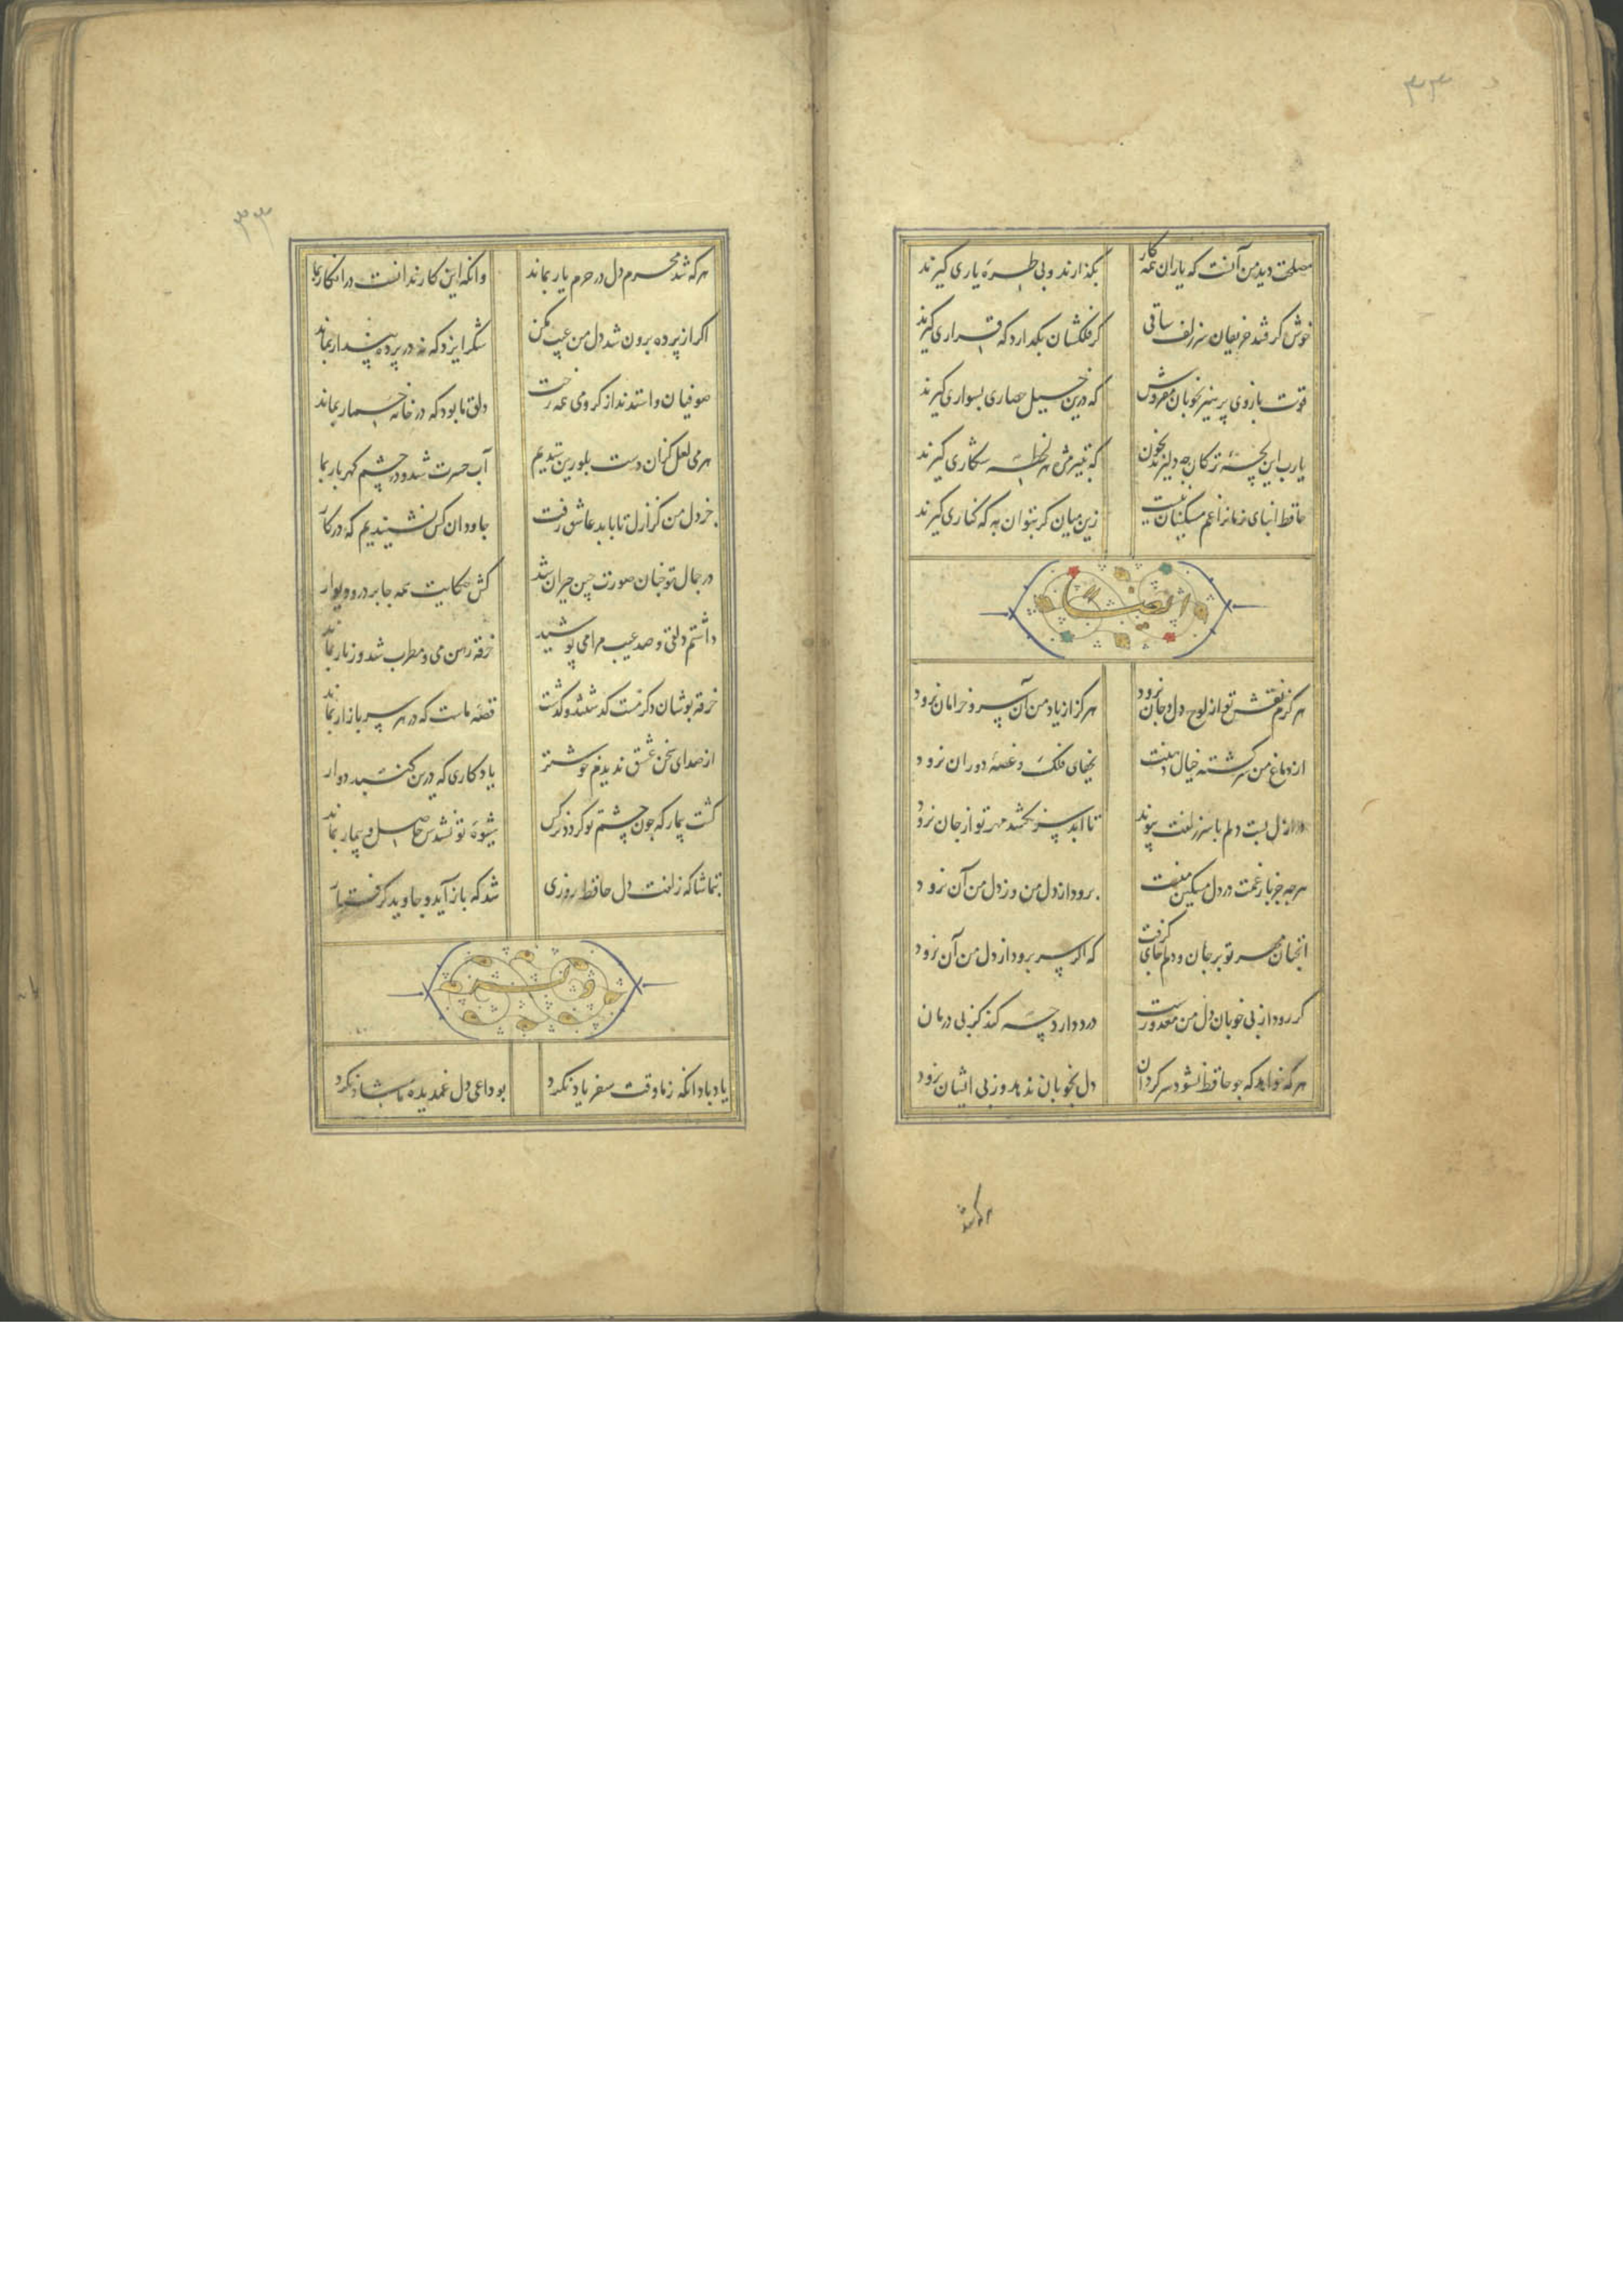 ۳۳
مصلحت دید من آنست که یاران همه کار
بکذارند و پی طره یاری کیرند
خوش کرفتند حریفان سر زلف ساقی
کر فلکشان بکذارد که قراری کیرند
قوت بازوی پرهیز بخوبان مفروش
که درین خیل حصاری بسواری کیرند
یارب این بچه ترکان چه دلیرند بخون
که بتیر مژه هر لحظه شکاری کیرند
حافظ ابنای زمانرا غم مسکینان نیست
زین میان کر بتوان به که کناری کیرند
وایضا
هرکزم نقش تو از لوح دل و جان نرود
هرکز از یاد من آن سرو خرامان نرود
از دماغ من سرکشته خیال دهنت
بجفای فلک و غصه دوران نرود
در ازل بست دلم با سر زلفت پیوند
تا ابد سر نکشد مهر تو از جان نرود
هرچه جز بار غمت در دل مسکین منست
برود از دل من وز دل من آن نرود
انچنان مهر تو بر جان و دلم جای کرفت
که اکر سر برود از دل من آن نرود
کر رود از پی خوبان دل من معذورست
درد دارد چه کند کز پی درمان
هرکه خواهد که چو حافظ نشود سرکردان
دل بخوبان ندهد وز پی ایشان نرود
هرکه شد
۳۳
هرکه شد محرم دل در حرم یار بماند
وانکه این کار ندانست در انکار بما
اکر از پرده برون شد دل من عیب مکن
شکر ایزد که نه در پرده پندار بماند
صوفیان واستدند از کرو می همه رخت
دلق ما بود که در خانه خمار بماند
هر می لعل کزان دست بلورین ستدیم
آب حسرت شد و در چشم کهربار بما
جز دل من کز ازل تا بابد عاشق رفت
جاودان کس نشنیدیم که در کار
در جمال تو چنان صورت چین حیران شد
کش حکایت همه جا بر در و دیوار
داشتم دلقی و صد عیب مرا می پوشید
خرقه رهن می و مطرب شد و زنار بماند
خرقه پوشان دکر مست کذشتند و کذشت
قصه ماست که در هر سر بازار بماند
از صدای سخن عشق ندیدم خوشتر
یادکاری که درین کنبد دوار
کشت بیمار که چون چشم تو کردد نرکس
شیوه تو نشدش حاصل و بیمار بماند
بتماشاکه زلفت دل حافظ روزی
شد که باز آید و جاوید کرفتار
یاد باد انکه ز ما وقت سفر یاد نکرد
بوداعی دل غمدیده ما شاد نکرد